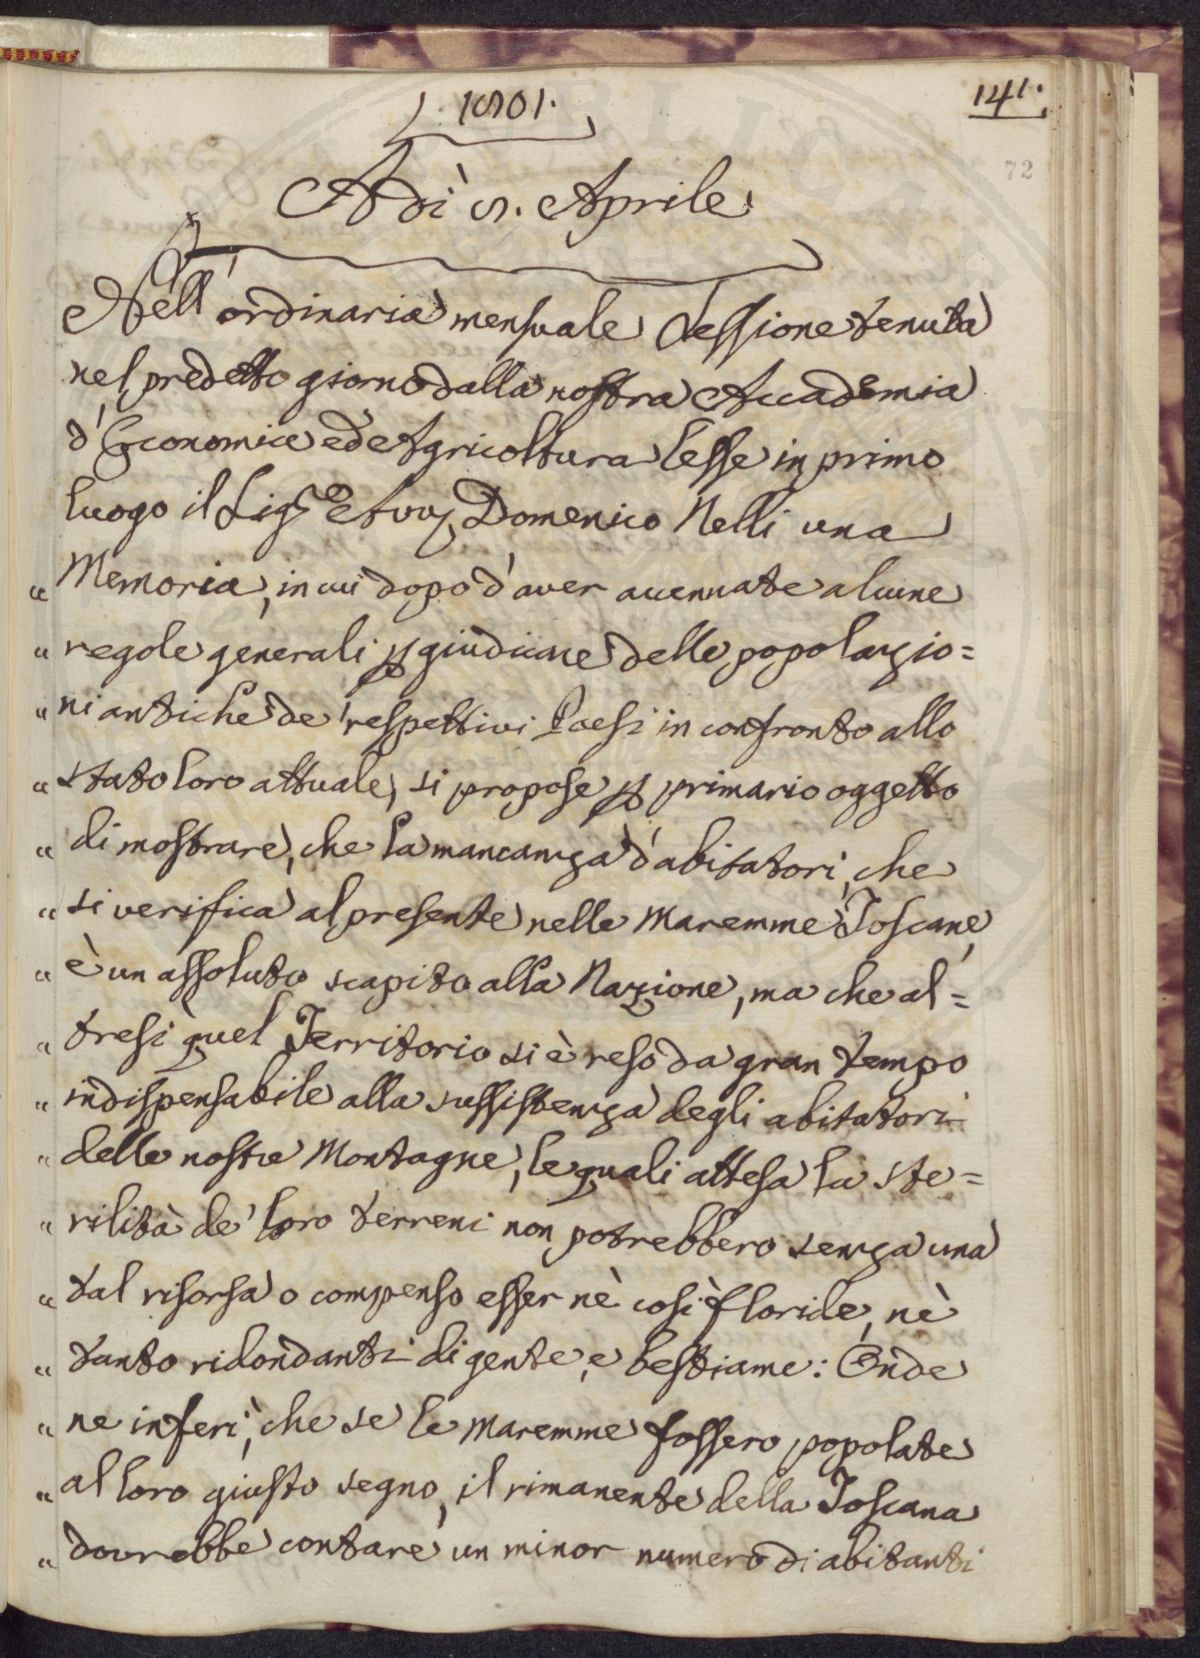 1801.
141.
72
Adì 8. Aprile
Nell'ordinaria mensuale Sessione tenuta
nel predetto giorno dalla nostra Accademia
d'Economica ed Agricoltura lesse in primo
luogo il Sig.re Avv. Domenico Nelli una
" Memoria, in cui dopo d'aver accennate alcune
" regole generali p giudicare delle popolazio=
" ni antiche de' respettivi Paesi in confronto allo
" stato loro attuale, si propose p primario oggetto
" di mostrare, che la mancanza d'abitatori, che
" si verifica al presente nelle Maremme Toscane,
" è un assoluto scapito alla Nazione, ma che al=
" tresì quel Territorio si è reso da gran tempo
" indispensabile alla sussistenza degli abitatori
" delle nostre Montagne, le quali attesa la ste=
" rilità de' loro terreni non potrebbero senza una
" tal risorsa o compenso esser nè così floride, nè
" tanto ridondanti di gente, e bestiame: Onde
" ne inferì, che se le Maremme fossero popolate
" al loro giusto segno, il rimanente della Toscana
" dovrebbe contare un minor numero di abitanti